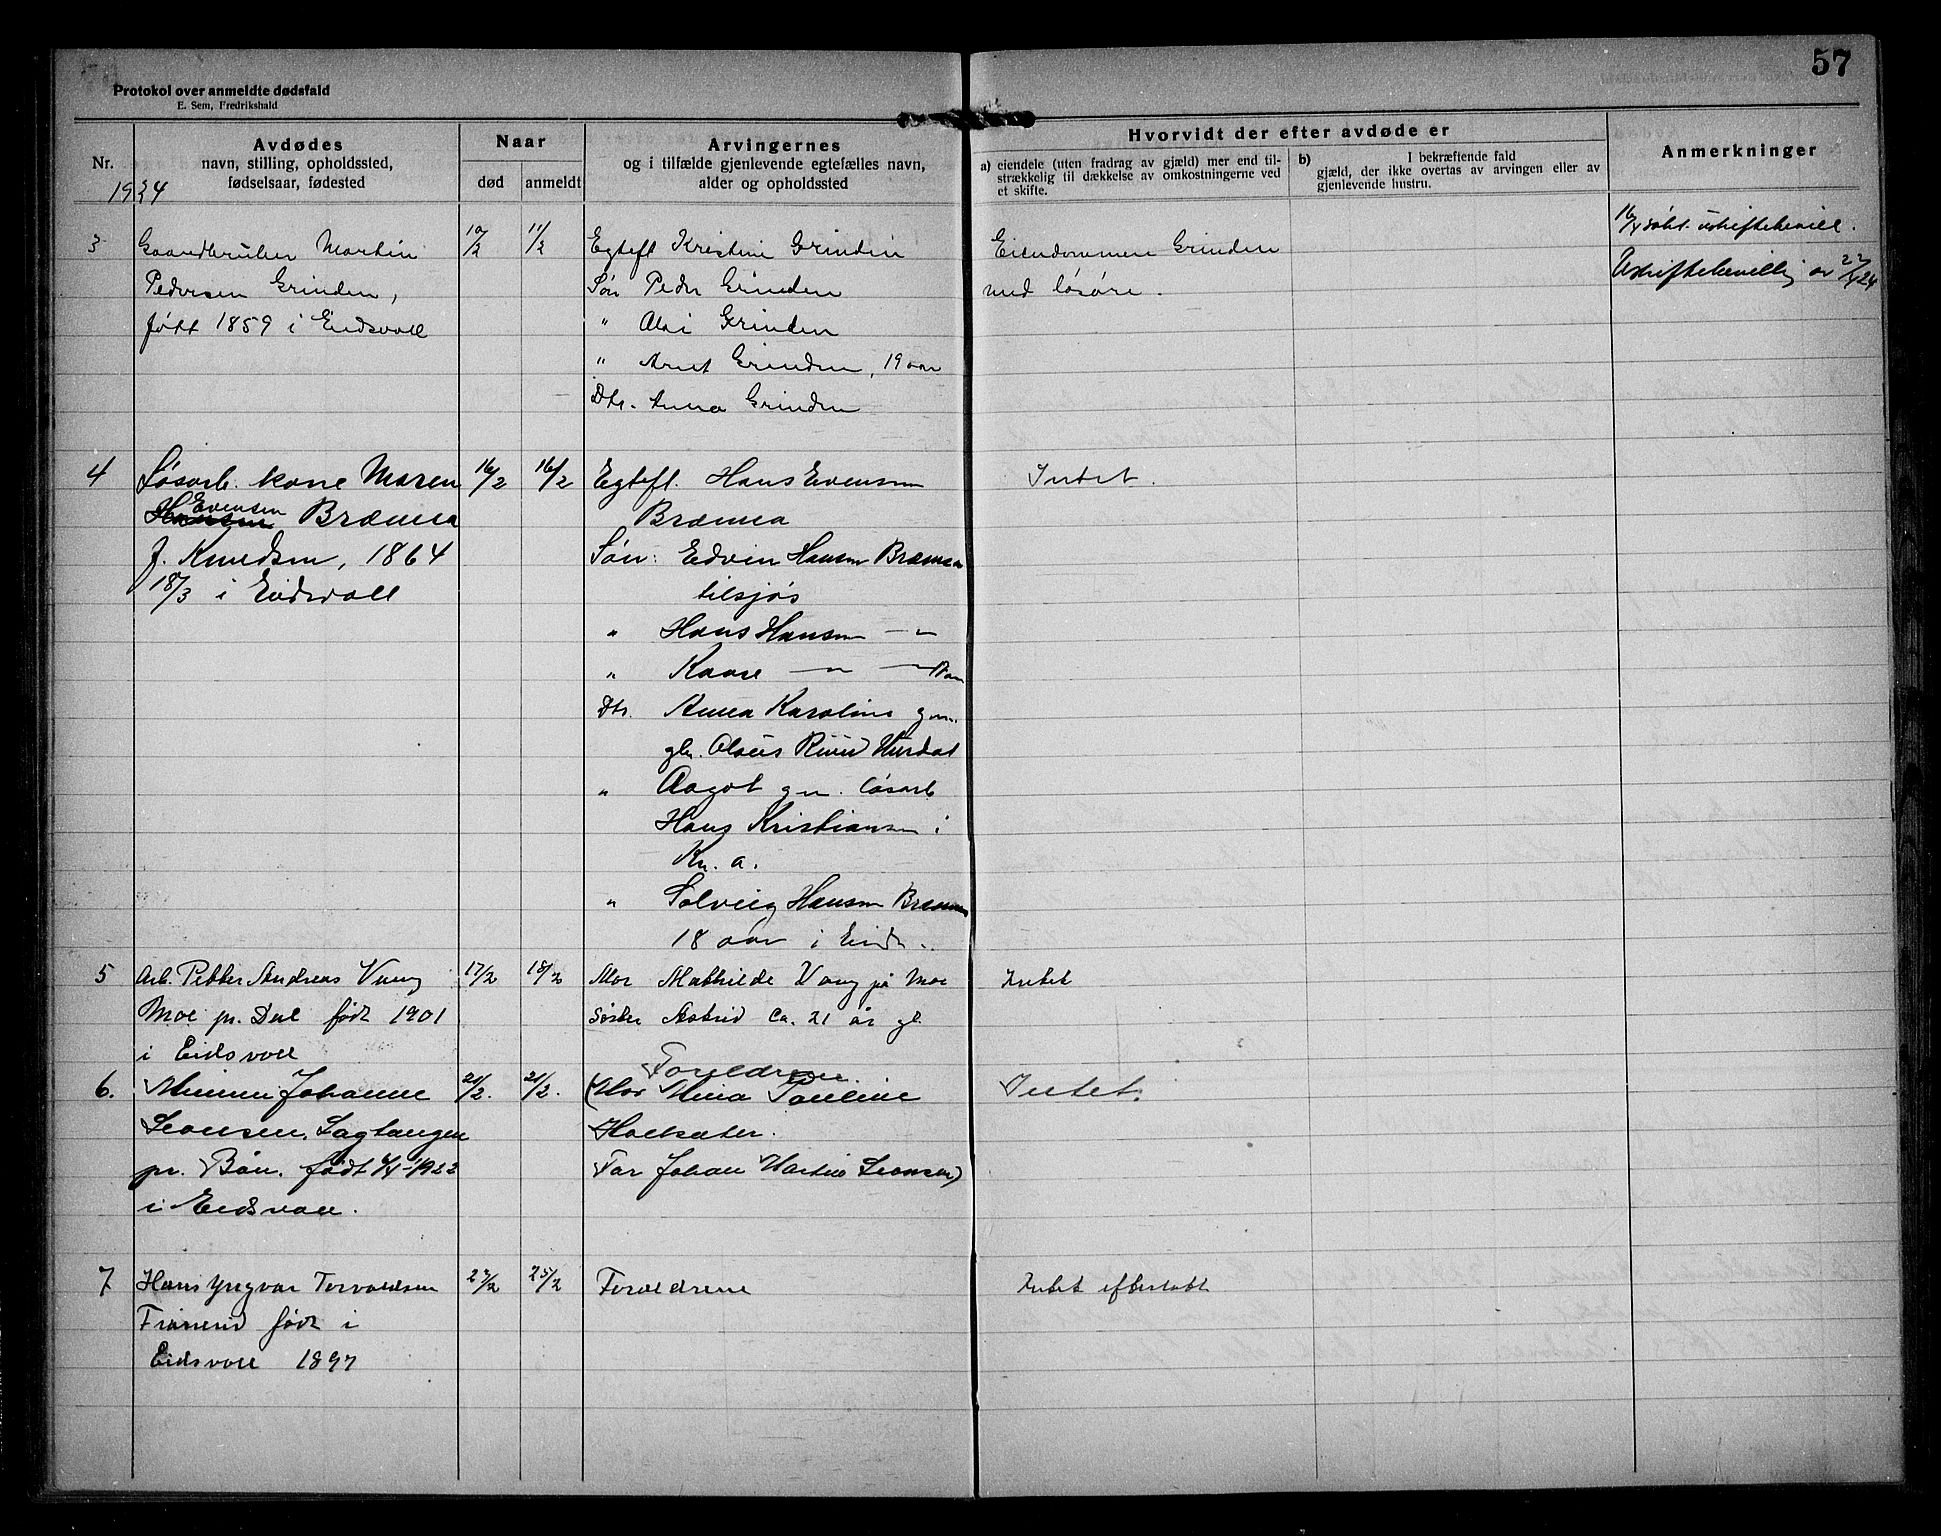 57
Protokol over anmeldte dødsfald
E. Sem, Fredrikshald
Nr.
1924
Avdødes
navn, stilling, opholdssted,
fødselsaar, fødested
Naar
død
anmeldt
Arvingernes
og i tilfælde gjenlevende egtefælles navn,
alder og opholdssted
Hvorvidt der efter avdøde er
a) eiendele (uten fradrag av gjæld) mer end til-
strækkelig til dækkelse av omkostningerne ved
et skifte.
b) I bekræftende fald
gjæld, der ikke overtas av arvingen eller av
gjenlevende hustru.
Anmerkninger
3
Gaardbruker Martin
Pedersen Grinden,
født 1859 i Eidsvoll
10/2
11/2
Egtef. Kristine Grinden
Søn Peder Grinden
" Grinden
" Arnt Grinden, 19 aar
Dtr. Anna Grinden
Eiendommen Grinden
med løsøre.
16/4 søkt uskiftebevill.
Uskiftebevilling av 22/4 24
4
Løsarb. kone Maren
Evensen
Hansen Brænna
f. Knudsen, 1864
18/3 i Eidsvoll
16/2
16/2
Egtef. Hans Evensen
Brænna
Søn: Edvin Hansen Brænna
tilsjøs
" Hans Hansen — " —
" Kaare — " —
Dtr. Anna Karoline g.m.
Ruud Hurdal
" Aagot gm. løsarb
Hans Kristiansen i
Kr. a.
" Solveig Hansen Brænna
18 aar i Eids.
Intet.
5
Arb. Petter Andreas Vang
Moe pr. Dal født 1901
i Eidsvoll
17/2
18/2
Mor Mathilde Vang på Moe
søster Astrid ca. 21 år gl.
Intet
6.
Minnie Johanne
Leonsen, Sagtangen
pr. Bøn. født 4/4-1922
i Eidsvoll.
20/2.
21/2.
Foreldrene.
(Mor Mina Pauline
Holtsæter.
Far Johan Martin Leonsen)
Intet.
7
Hans Yngvar Torvaldsen
født i
Eidsvoll 1897
22/2
25/2
Foreldrene
Intet efterlatt